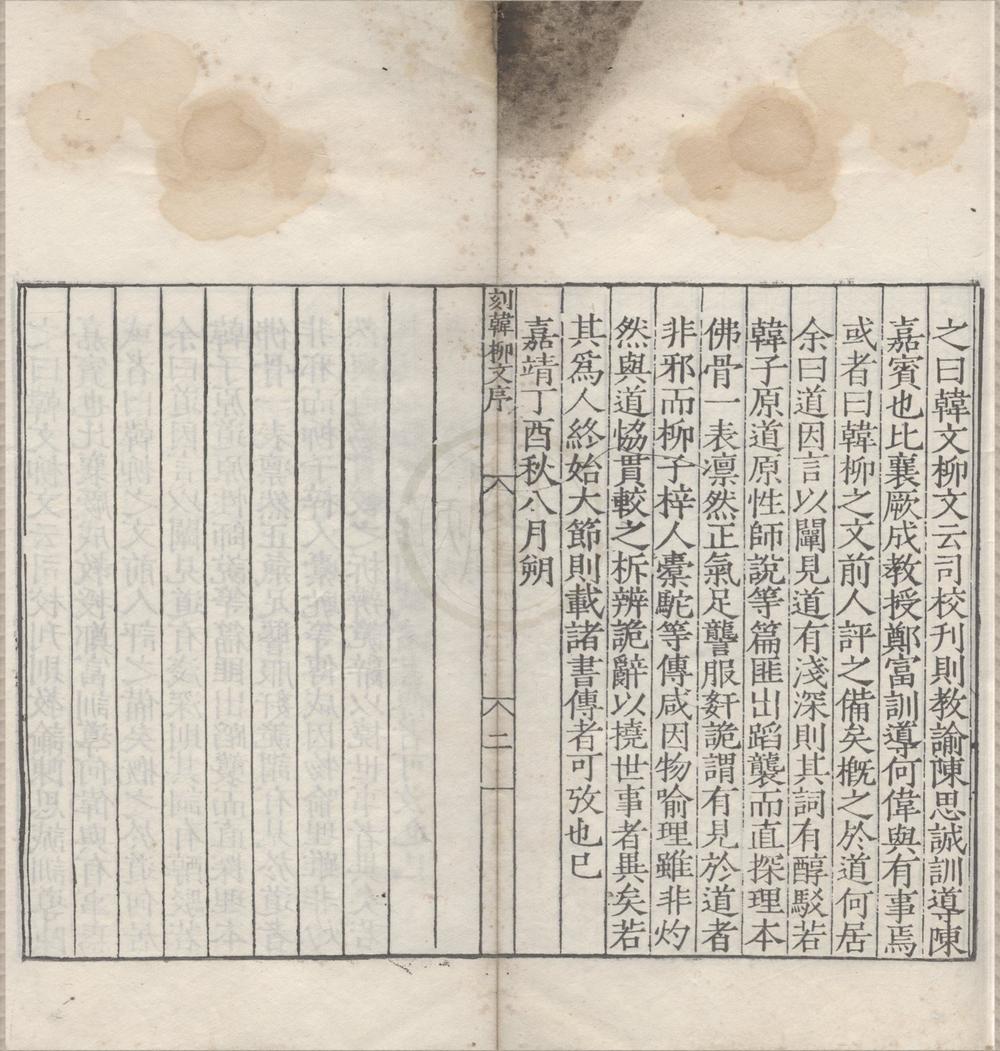 之曰韓文柳文云司校刋則教諭陳思誠訓導陳
嘉賓也比襄厥成教授鄭富訓導何偉與有事焉
或者曰韓柳之文前人評之備矣概之於道何居
余曰道因言以闡見道有淺深則其詞有醇駁若
韓子原道原性師說等篇匪出蹈襲而直探理本
佛骨一表凛然正氣足讋服姧詭謂有見於道者
非邪而柳子梓人槖駝等傳咸因物喻理雖非灼
然與道恊貫較之析辨詭辭以撓世事者異矣若
其爲人終始大節則載諸書傳者可攷也已
嘉靖丁酉秋八月朔
刻韓柳文序
二